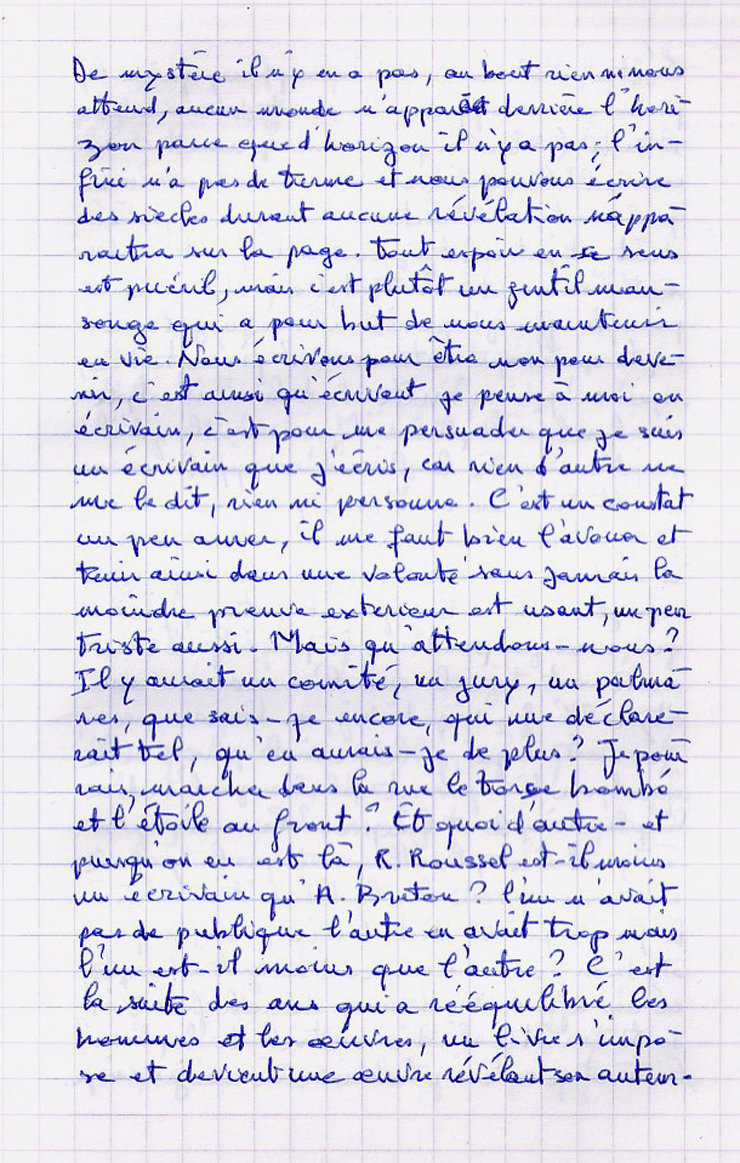 De mystère il n'y en a pas, au bout rien ni nous
attend, aucun monde n'apparaît derrière l'hori-
zon parce que d'horizon il n'y a pas; l'in-
fini n'a pas de terme et nous pouvons écrire
des siècles durant aucune révélation n'appa-
raitra sur la page. Tout espoir en ce sens
est puéril, mais c'est plutôt un gentil men-
songe qui a pour but de nous maintenir
en vie. Nous écrivons pour être non pour deve-
nir, c'est ainsi qu'écrivant je pense à moi en
écrivain, c'est pour me persuader que je suis
un écrivain que j'écris, car rien d'autre ne
me le dit, rien ni personne. C'est un constat
un peu amer, il me faut bien l'avouer et
tenir ainsi dans une volonté sans jamais la
moindre preuve exterieur est usant, un peu
triste aussi. Mais qu'attendons-nous?
Il y aurait un comité, un jury, un palma-
res, que sais-je encore, qui me déclare-
rait tel, qu'en aurais-je de plus? Je pour
rais, marcher dans la rue le torse bombé
et l'étoile au front? Et quoi d'autre - et
puisqu'on en est là, R. Roussel est-il moins
un écrivain qu'A. Breton? l'un n'avait
pas de publique l'autre en avait trop mais
l'un est-il moins que l'autre? C'est
la suite des ans qui a rééquilibré les
hommes et les œuvres, un livre s'impo-
se et devient une œuvre révélant son auteur.